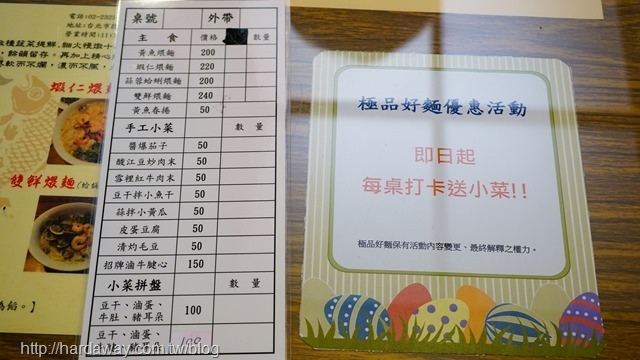 電話:02-232
地址:台北市
營業時間:11:
蝦仁煨麵
雙鮮煨麵
為餡。】
桌號 外帶
主食 價格 數量
黃魚煨麵 200
蝦仁煨麵 220
蒜蓉蛤蜊煨麵 200
雙鮮煨麵 240
黃魚春捲 50
手工小菜 數量
醬爆茄子 50
酸江豆炒肉末 50
雪裡紅牛肉末 50
豆干拌小魚干 50
蒜拌小黃瓜 50
皮蛋豆腐 50
清灼毛豆 50
招牌滷牛腱心 150
小菜拼盤 數量
豆干、滷蛋、
牛肚、豬耳朵 100
豆干、滷蛋、
極品好麵優惠活動
即日起
每桌打卡送小菜!!
極品好麵保有活動內容變更、最終解釋之權力。
http://hardaway.com.tw/blog